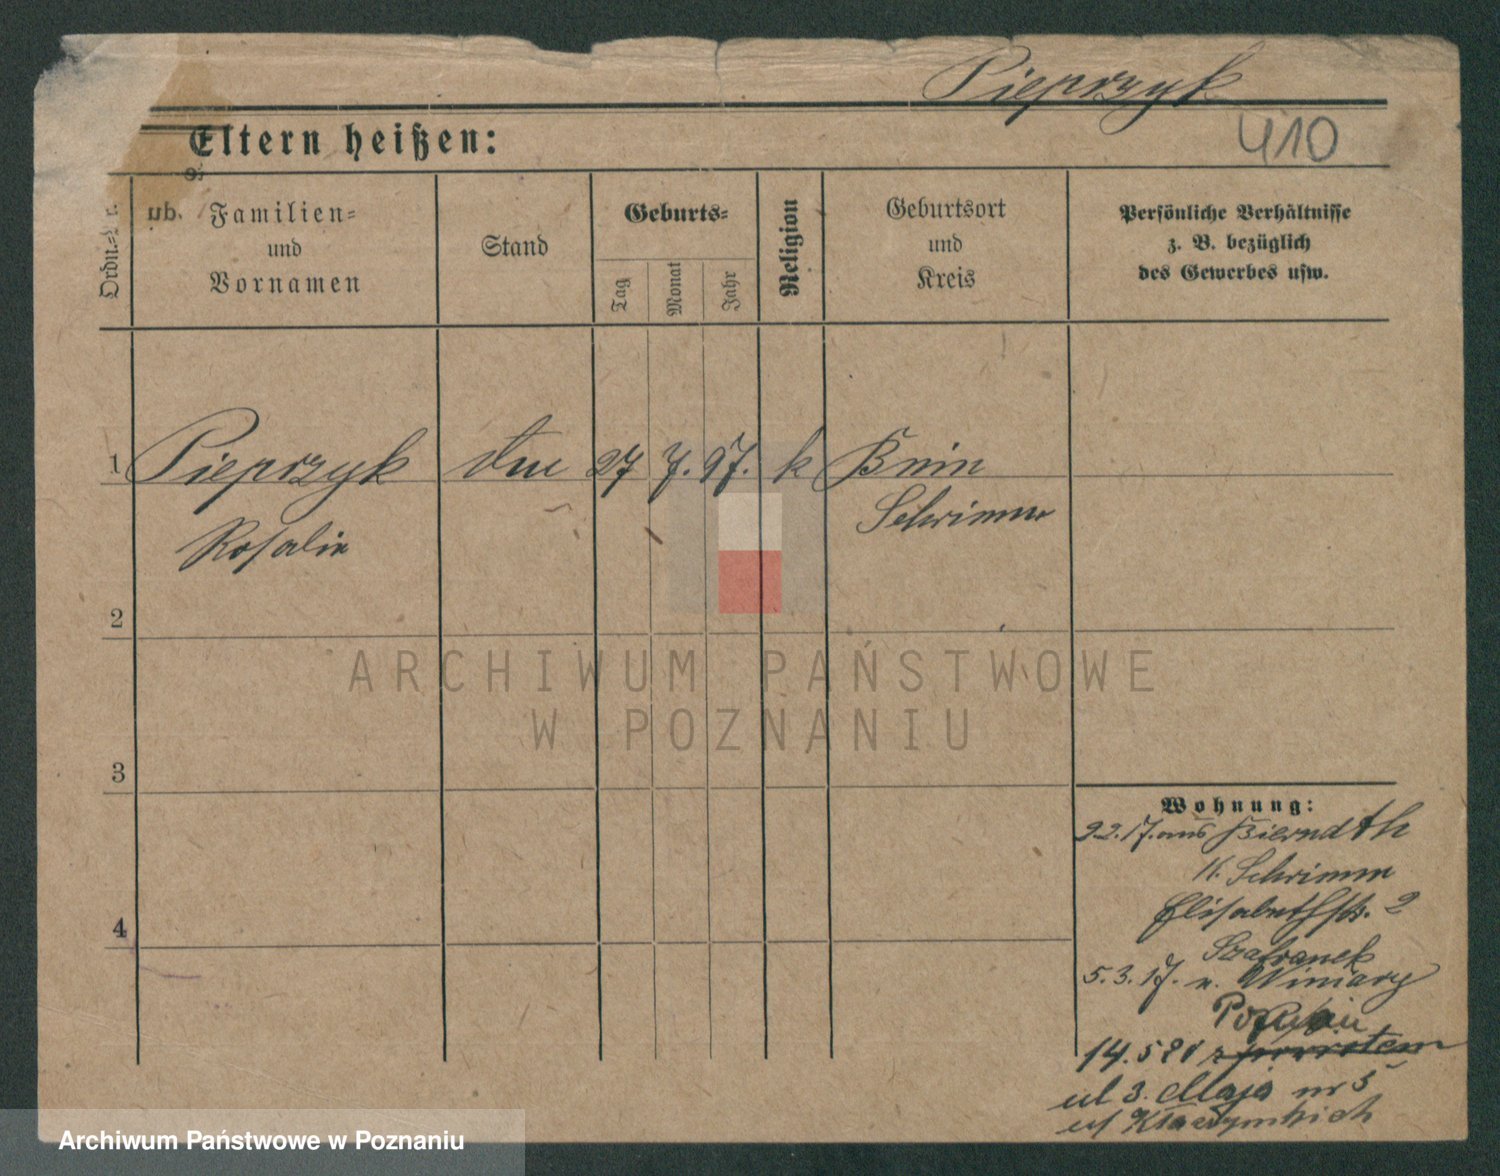 Pieprzyk
410
Eltern heißen:
Ordn.-Nr.
Familien=
und
Vornamen
Stand
Geburts=
Tag
Monat
Jahr
Religion
Geburtsort
und
Kreis
Persönliche Verhältnisse
z. B. bezüglich
des Gewerbes usw.
1 Pieprzyk 27 7. 97. k Bnin
Rosalie Schrimm
2
3
4
ARCHIWUM PAŃSTWOWE
W POZNANIU
Wohnung:
22.17. aus
K. Schrimm
Elisabethstr. 2
Szafranek
5.3.17. n. Winiary
14.5
ul 3. Maja nr 5
ul
Archiwum Państwowe w Poznaniu